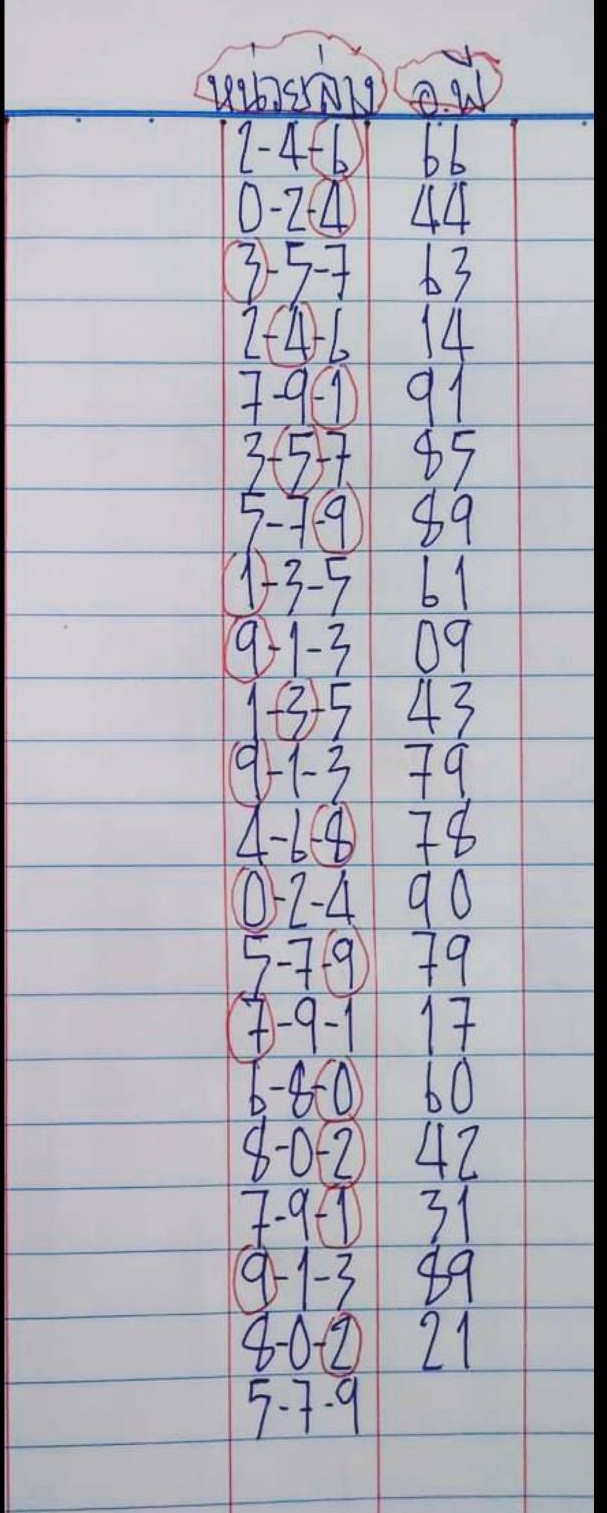 หน่วยล่าง อ.พี่
2-4-6 66
0-2-4 44
3-5-7 63
2-4-6 14
7-9-1 91
3-5-7 85
5-7-9 89
1-3-5 61
9-1-3 09
1-3-5 43
9-1-3 79
4-6-8 78
0-2-4 90
5-7-9 79
7-9-1 17
6-8-0 60
8-0-2 42
7-9-1 31
9-1-3 89
8-0-2 21
5-7-9